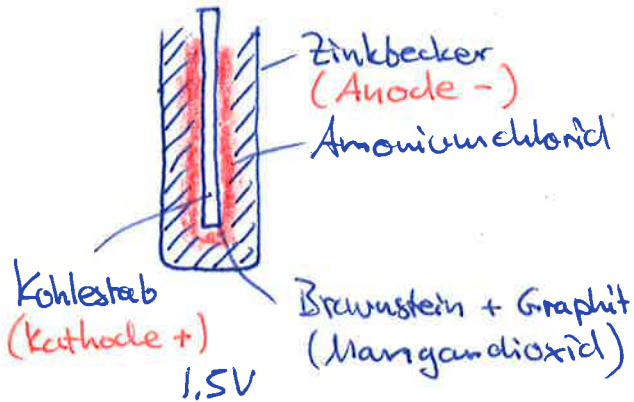 Zinkbecker
(Anode -)
Amoniumchlorid
Kohlestab
(Kathode +)
Braunstein + Graphit
(Mangandioxid)
1.5V